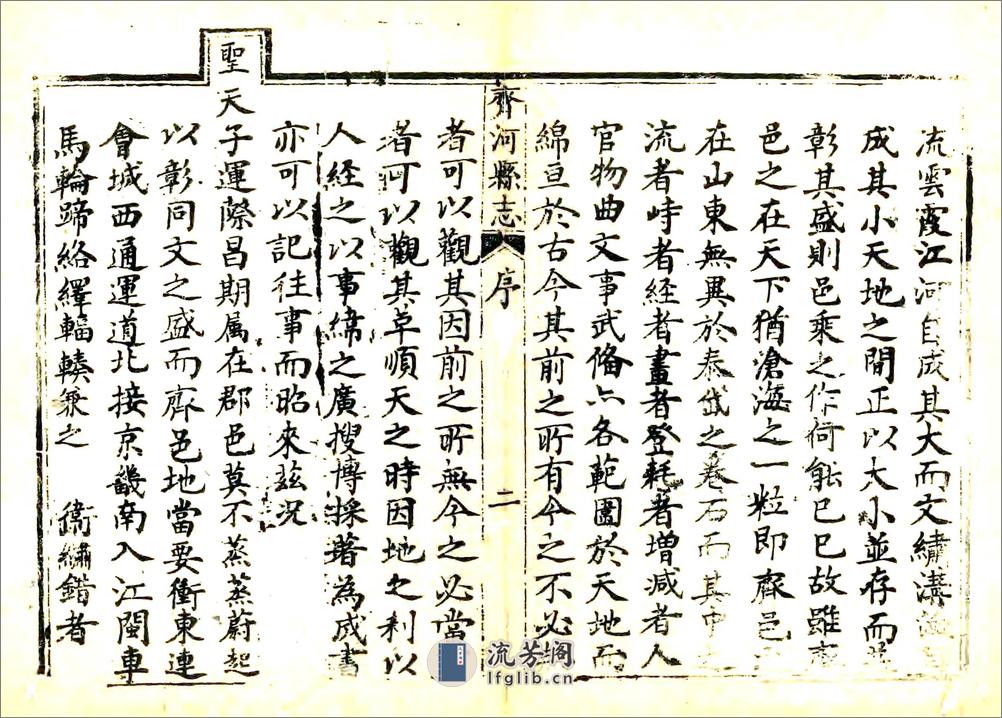 流雲霞江河自成其大而文繡溝
成其小天地之間正以大小並存而
彰其盛則邑乘之作何能已已故雖
邑之在天下猶滄海之一粒即齊邑
在山東無異於泰岱之卷石而其中
流者峙者經者畫者登耗者增減者人
官物曲文事武俻亦各範圍於天地而
綿亘於古今其前之所有今之不必
齊河縣志
序
二
者可以觀其因前之所無今之必當
者可以觀其草順天之時因地之利以
人經之以事緯之廣搜博採著為成書
亦可以記往事而昭來茲況
聖天子運際昌期属在郡邑莫不蒸蒸蔚起
以彰同文之盛而齊邑地當要衝東連
會城西通運道北接京畿南入江閩車
馬輪蹄絡繹輻輳兼之 衞繡錯者
流芳閣
lfglib.cn